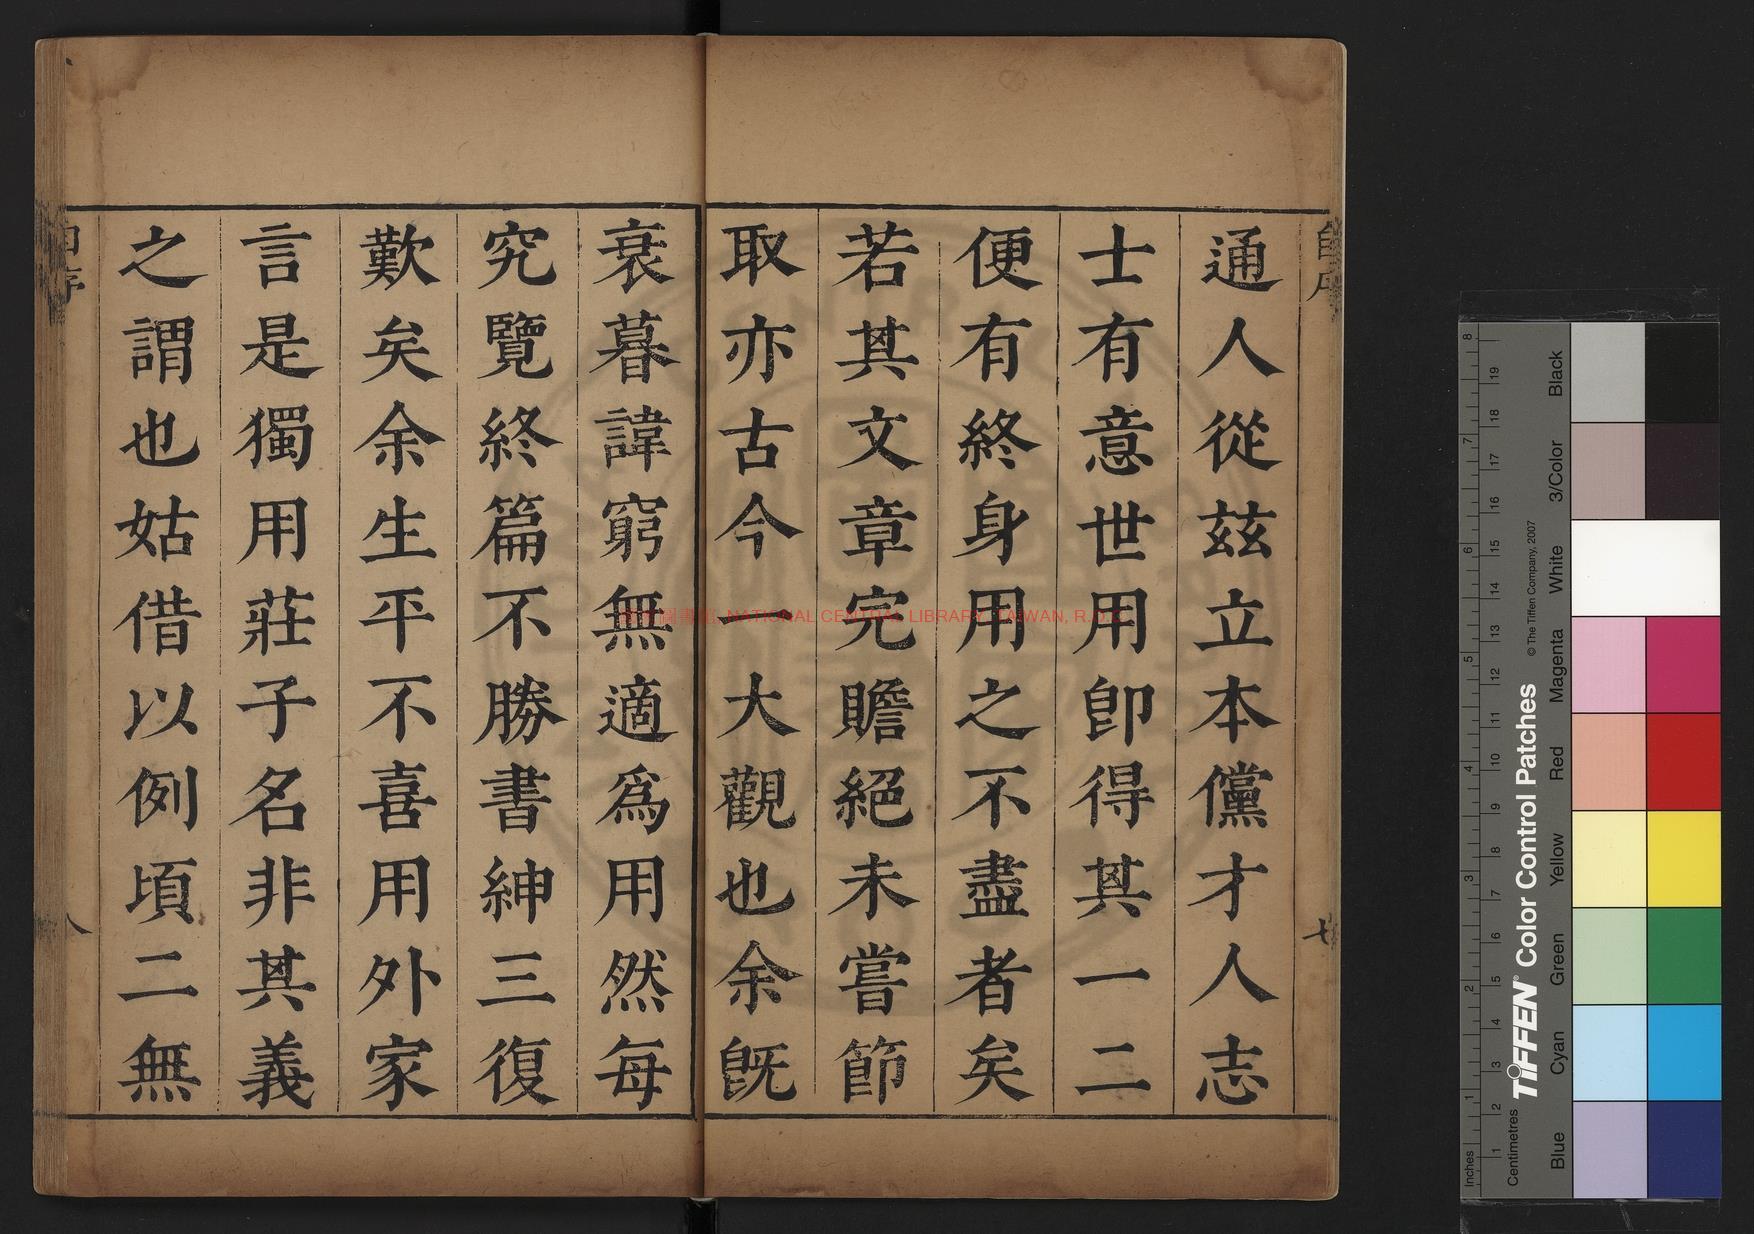 通人從茲立本儻才人志
士有意世用卽得其一二
便有終身用之不盡者矣
若其文章完贍絕未嘗節
取亦古今一大觀也余旣
衰暮諱窮無適爲用然每
究覽終篇不勝書紳三復
歎矣余生平不喜用外家
言是獨用莊子名非其義
之謂也姑借以例頃二無
七
八
NATIONAL CENTRAL LIBRARY, TAIWAN, R.O.C
TIFFEN® Color Control Patches
© The Tiffen Company, 2007
Inches
1 2 3 4 5 6 7 8
Centimetres
1 2 3 4 5 6 7 8 9 10 11 12 13 14 15 16 17 18 19
Blue
Cyan
Green
Yellow
Red
Magenta
White
3/Color
Black